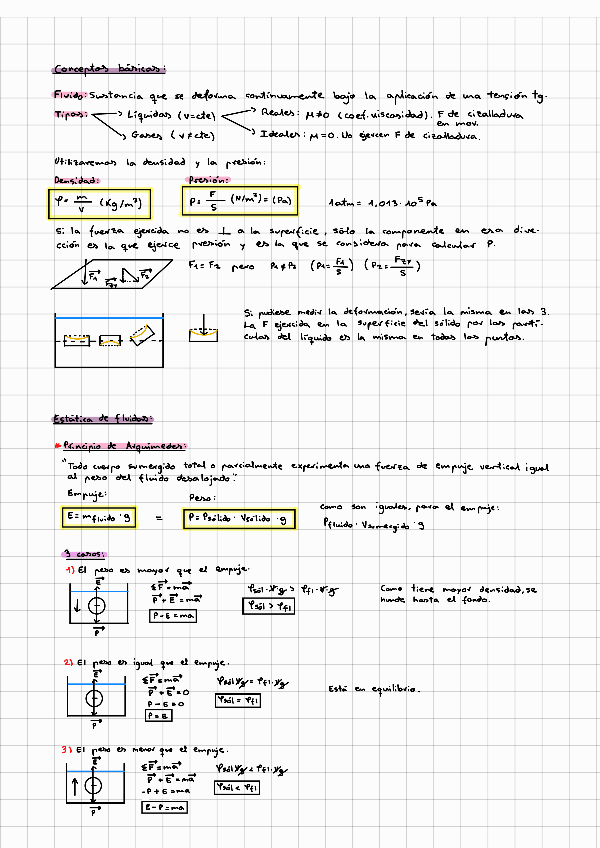 Conceptos básicos:
Fluido: Sustancia que se deforma continuamente bajo la aplicación de una tensión tg.
Tipos: → Líquidos (v=cte) → Reales: μ≠0 (coef. viscosidad). F de cizalladura en mov.
→ Gases (v≠cte) → Ideales: μ=0. No ejercen F de cizalladura.
Utilizaremos la densidad y la presión:
Densidad: Presión:
ρ = m/v (Kg/m³) P = F/S (N/m²) = (Pa) 1atm = 1,013·10⁵ Pa
Si la fuerza ejercida no es ⊥ a la superficie, sólo la componente en esa dire-
cción es la que ejerce presión y es la que se considera para calcular P.
F₁ F₂y F₂ F₁ = F₂ pero P₁ ≠ P₂ (P₁ = F₁/S) (P₂ = F₂y/S)
Si pudiese medir la deformación, sería la misma en las 3.
La F ejercida en la superficie del sólido por las partí-
culas del líquido es la misma en todos los puntos.
Estática de fluidos:
* Principio de Arquímedes:
"Todo cuerpo sumergido total o parcialmente experimenta una fuerza de empuje vertical igual
al peso del fluido desalojado".
Empuje: Peso: como son iguales, para el empuje:
E = m fluido · g = P = ρsólido · Vsólido · g ρfluido · Vsumergido · g
3 casos:
1) El peso es mayor que el empuje.
E ΣF = ma ρsól · V · g > ρfl · V · g Como tiene mayor densidad, se
P + E = ma ρsól > ρfl hunde hasta el fondo.
P - E = ma
P
2) El peso es igual que el empuje.
E ΣF = ma ρsól V g = ρfl · V g Está en equilibrio.
P + E = 0 ρsól = ρfl
P - E = 0
P = E
P
3) El peso es menor que el empuje.
E ΣF = ma ρsól V g < ρfl · V g
P + E = ma ρsól < ρfl
-P + E = ma
E - P = ma
P